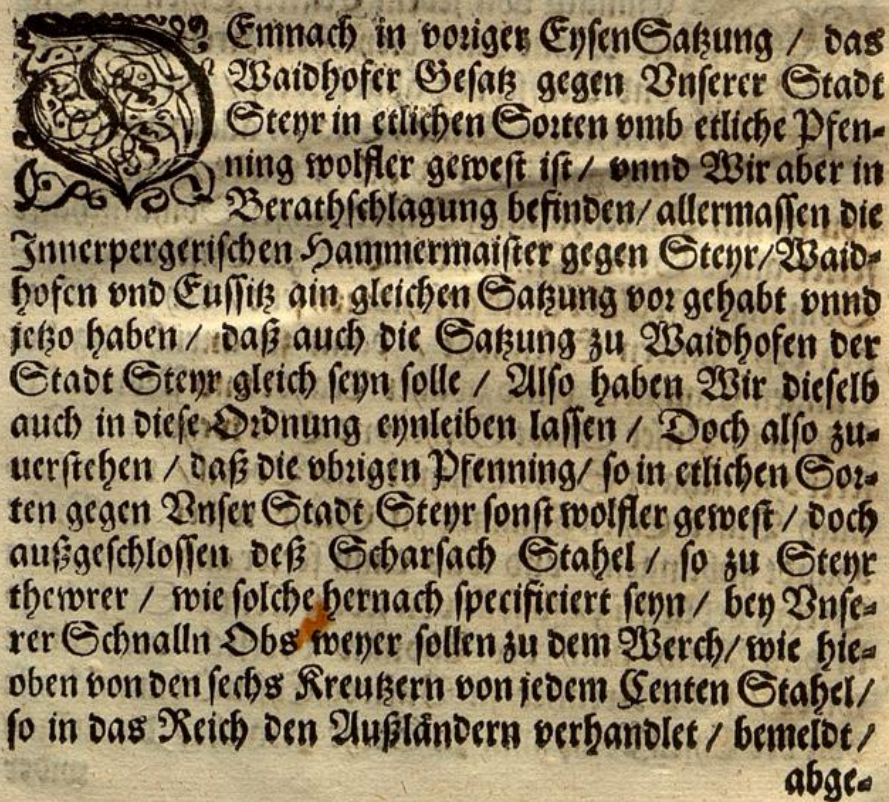 DEmnach in voriger EysenSatzung / das
Waidhofer Gesatz gegen Vnserer Stadt
Steyr in etlichen Sorten vmb etliche Pfen-
ning wolfler gewest ist / vnnd Wir aber in
Berathschlagung befinden / allermassen die
Innerpergerischen Hammermaister gegen Steyr / Waid-
hofen vnd Eussitz ain gleichen Satzung vor gehabt vnnd
jetzo haben / daß auch die Satzung zu Waidhofen der
Stadt Steyr gleich seyn solle / Also haben Wir dieselb
auch in diese Ordnung eynleiben lassen / Doch also zu-
uerstehen / daß die vbrigen Pfenning / so in etlichen Sor-
ten gegen Vnser Stadt Steyr sonst wolfler gewest / doch
außgeschlossen deß Scharsach Stahel / so zu Steyr
thewrer / wie solche hernach specificiert seyn / bey Vnse-
rer Schnalln Obs weyer sollen zu dem Werch / wie hie-
oben von den sechs Kreutzern von jedem Centen Stahel /
so in das Reich den Außländern verhandlet / bemeldt /
abge-